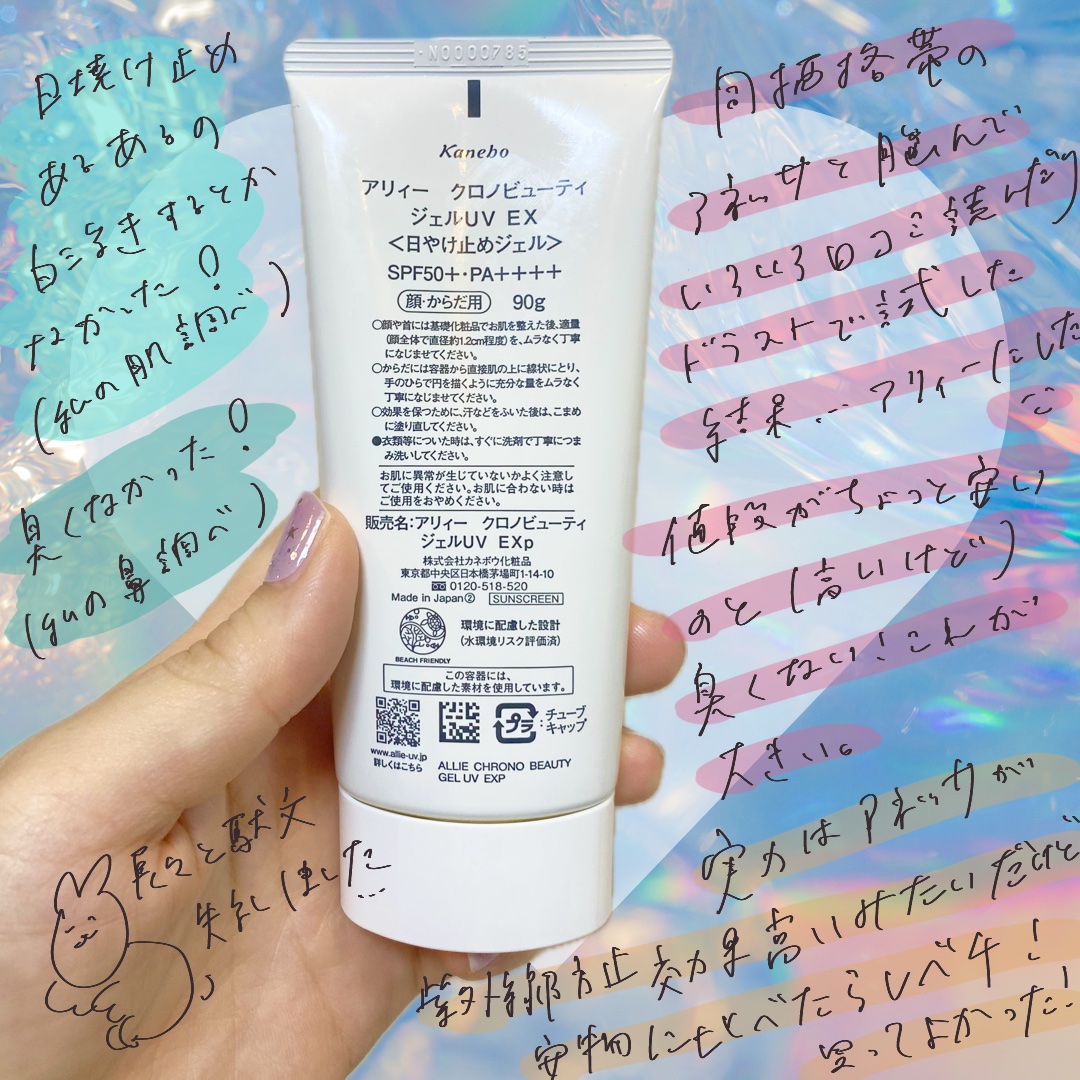 日焼け止め
あるあるの
白浮きするとか
なかった!
(guの肌調べ)
臭くなかった!
(guの鼻調べ)
N0000785
Kanebo
アリィー クロノビューティ
ジェルUV EX
<日やけ止めジェル>
SPF50+・PA++++
顔・からだ用 90g
○顔や首には基礎化粧品でお肌を整えた後、適量
(顔全体で直径約1.2cm程度)を、ムラなく丁寧
になじませてください。
○からだには容器から直接肌の上に線状にとり、
手のひらで円を描くように充分な量をムラなく
丁寧になじませてください。
○効果を保つために、汗などをふいた後は、こまめ
に塗り直してください。
●衣類等についた時は、すぐに洗剤で丁寧につま
み洗いしてください。
お肌に異常が生じていないかよく注意し
てご使用ください。お肌に合わない時は
ご使用をおやめください。
販売名:アリィー クロノビューティ
ジェルUV EXp
株式会社カネボウ化粧品
東京都中央区日本橋茅場町1-14-10
0120-518-520
Made in Japan② SUNSCREEN
環境に配慮した設計
(水環境リスク評価済)
BEACH FRIENDLY
この容器には、
環境に配慮した素材を使用しています。
プラ :チューブ
キャップ
www.allie-uv.jp
詳しくはこちら
ALLIE CHRONO BEAUTY
GEL UV EXP
同価格帯の
アネッサと悩んで
いろいろ口コミ読んだり
ドラストで試した
結果...アリィーにした
値段がちょっと安い
のと(高いけど)
臭くない!これが
大きい。
実力はアネッサが
紫外線防止効果高いみたいだけど
安物にくらべたらレベチ!
買ってよかった!
長々と駄文
失礼しました...